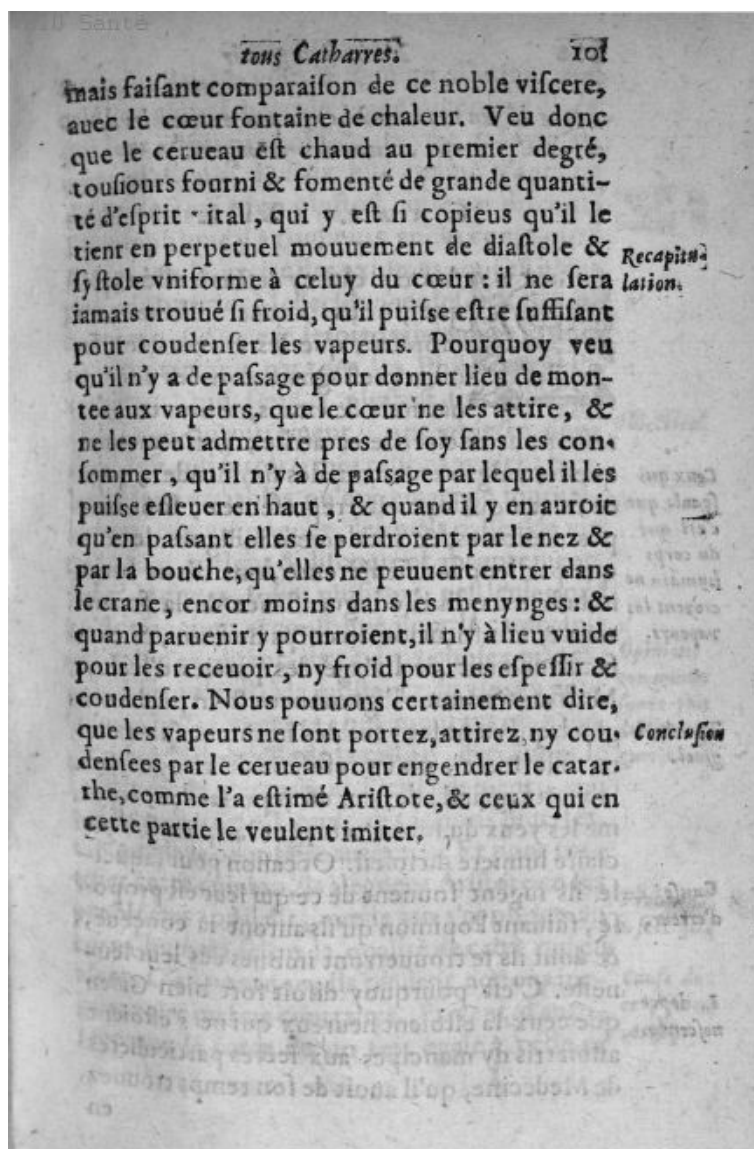 BIU Santé
tous Catharres. 101
mais faiſant comparaiſon de ce noble viſcere,
auec le cœur fontaine de chaleur. Veu donc
que le cerueau eſt chaud au premier degré,
touſiours fourni & fomenté de grande quanti-
té d'eſprit ital, qui y eſt ſi copieus qu'il le
tient en perpetuel mouuement de diaſtole &
ſyſtole vniforme à celuy du cœur : il ne ſera
iamais trouué ſi froid, qu'il puiſſe eſtre ſuffiſant
pour coudenſer les vapeurs. Pourquoy veu
qu'il n'y a de paſsage pour donner lieu de mon-
tee aux vapeurs, que le cœur ne les attire, &
ne les peut admettre pres de ſoy ſans les con-
ſommer, qu'il n'y à de paſsage par lequel il les
puiſse eſleuer en haut, & quand il y en auroit
qu'en paſsant elles ſe perdroient par le nez &
par la bouche, qu'elles ne peuuent entrer dans
le crane, encor moins dans les menynges : &
quand paruenir y pourroient, il n'y à lieu vuide
pour les receuoir, ny froid pour les eſpeſſir &
coudenſer. Nous pouuons certainement dire,
que les vapeurs ne ſont portez, attirez, ny cou-
denſees par le cerueau pour engendrer le catar-
rhe, comme l'a eſtimé Ariſtote, & ceux qui en
cette partie le veulent imiter.
Recapitu-
lation.
Concluſion